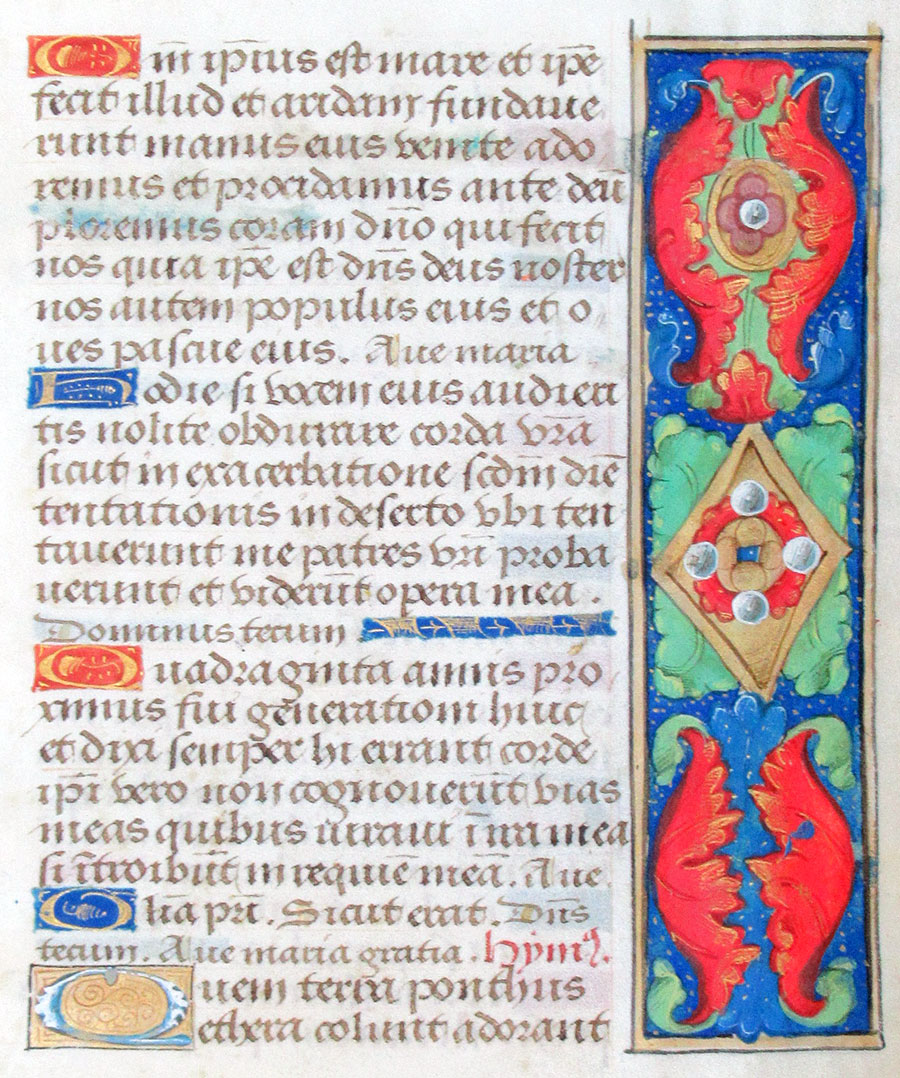 Qm̄ ip̄ius est mare et ip̄e
fecit illud et aridam fundaue
runt manus eius venite ado
remus et procidamus ante deū
ploremus coram dn̄o qui fecit
nos quia ip̄e est dn̄s deus noster
nos autem populus eius et o
ues pascue eius. Aue maria
Hodie si vocem eius audieri
tis nolite obdurare corda vr̄a
sicut in exacerbatione scdm̄ diē
tentationis in deserto vbi ten
tauerunt me patres vr̄i proba
uerunt et viderūt opera mea.
Dominus tecum
Quadraginta annis pro
ximus fui generationi huic
et dixi semper hi errant corde
ip̄i vero non cognouerūt vias
meas quibus iuraui ī ira mea
si ītroibūt in requiē meā. Aue
Glīa pr̄i. Sicut erat. Dn̄s
tecum. Aue maria gratia. Hymꝰ.
Quem terra ponthus
ethera colunt adorant